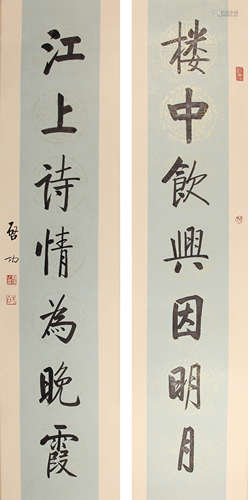 楼中飲興因明月
江上詩情為晚霞
啓功